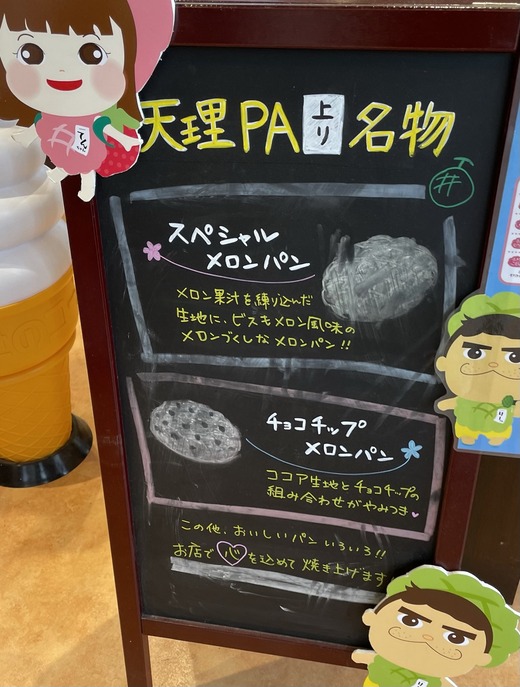 天理PA上り名物
スペシャル
メロンパン
メロン果汁を練り込んだ
生地に、ビスキメロン風味の
メロンづくしなメロンパン!!
チョコチップ
メロンパン
ココア生地とチョコチップの
組み合わせがやみつき♥
この他、おいしいパンいろいろ!!
お店で心を込めて焼き上げます